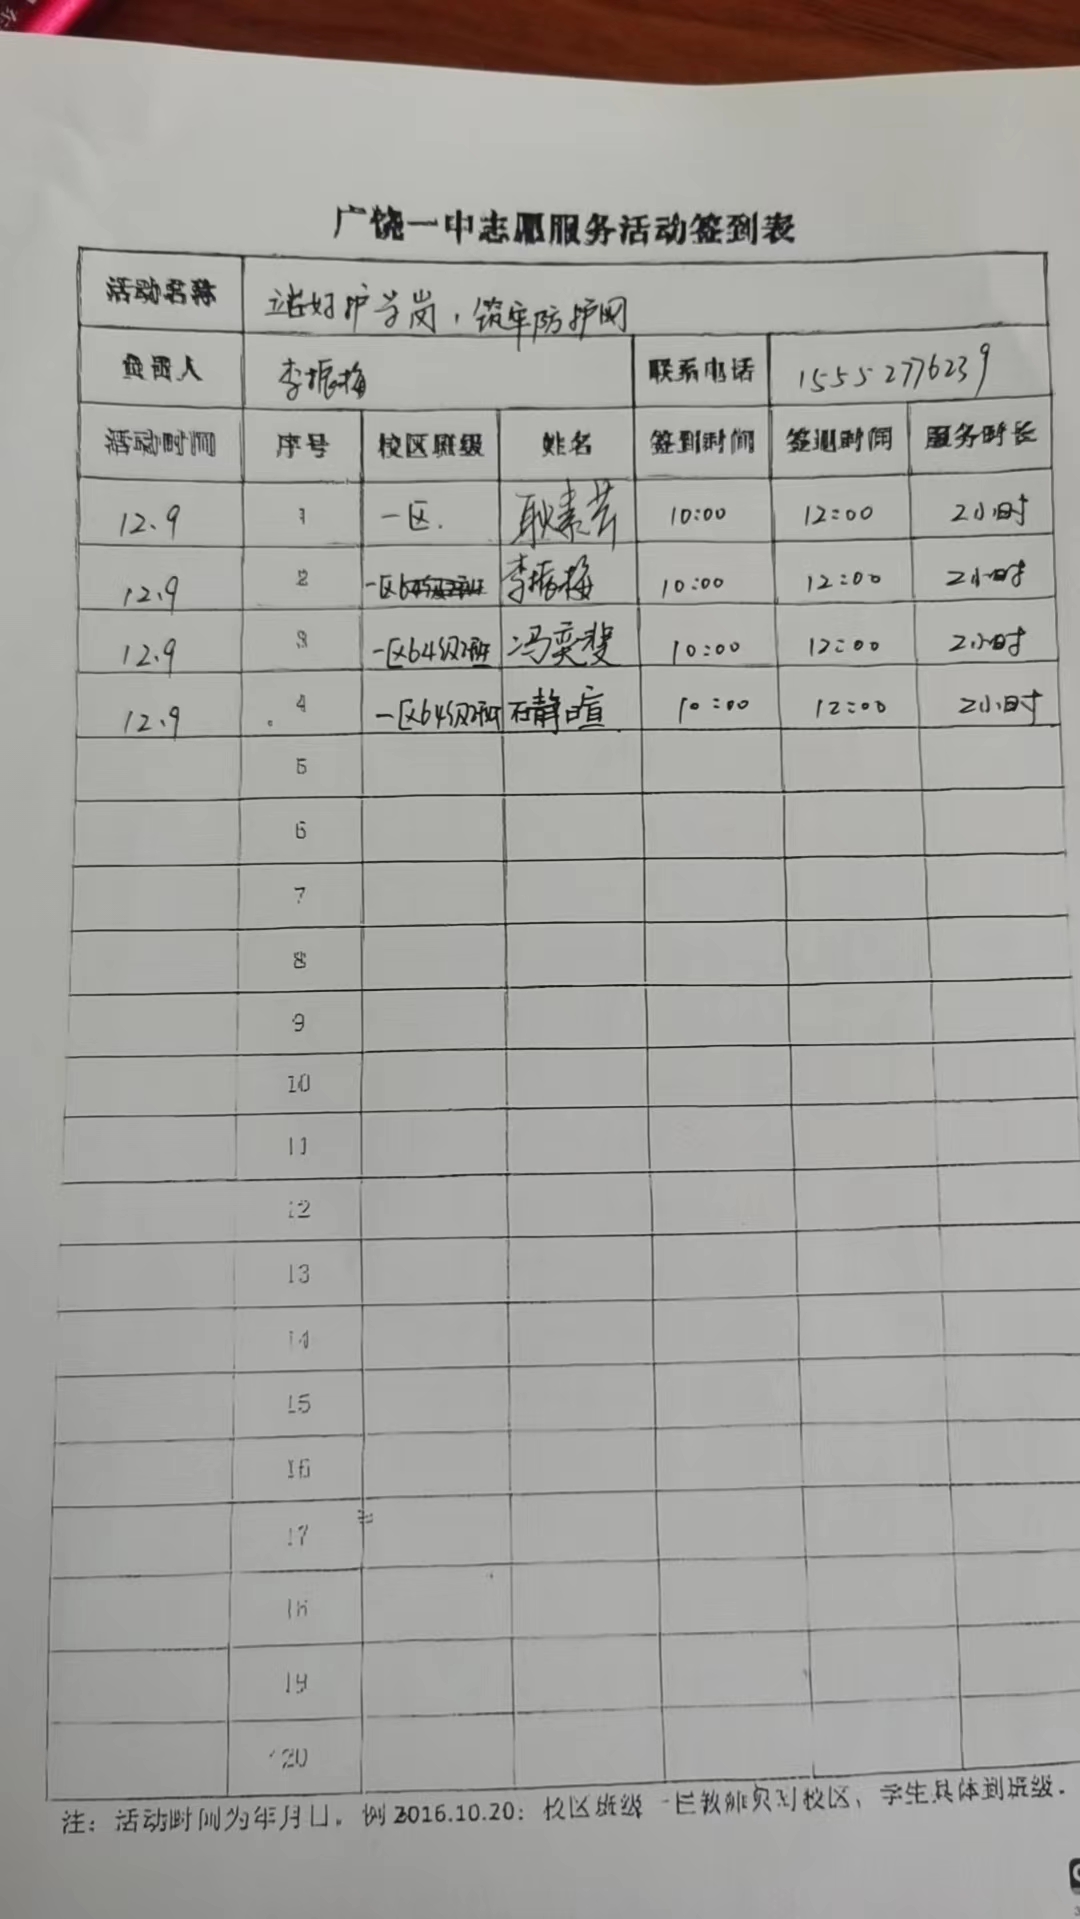 广饶一中志愿服务活动签到表
活动名称 站好护学岗，筑牢防护网
负责人 李振梅 联系电话 15552776239
活动时间 序号 校区班级 姓名 签到时间 签退时间 服务时长
12.9 1 一区. 耿素芳 10:00 12:00 2小时
12.9 2 一区 李振梅 10:00 12:00 2小时
12.9 3 一区64级2班 冯奕斐 10:00 12:00 2小时
12.9 4 一区64级2班 石静暄 10:00 12:00 2小时
5
6
7
8
9
10
11
12
13
14
15
16
17
18
19
20
注：活动时间为年月日。例2016.10.20；校区班级一栏教师只到校区、学生具体到班级.